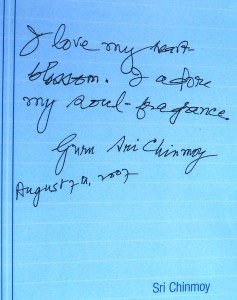 I love my heart-
blossom. I adore
my soul-fragrance.
Guru Sri Chinmoy
August 7th, 2007
Sri Chinmoy